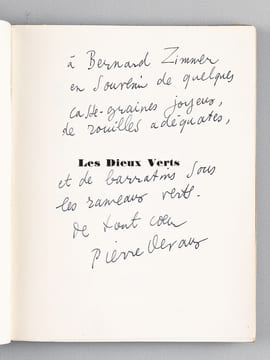 à Bernard Zimmer
en souvenir de quelques
casse-graines joyeux,
de rouilles adéquates,
Les Dieux Verts
et de barratins sous
les rameaux verts.
De tout cœur
Pierre Devaux